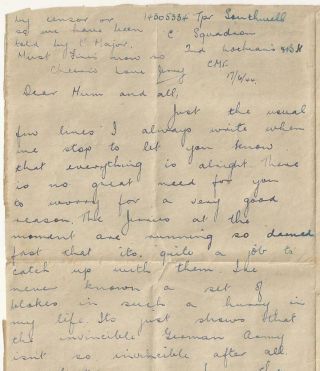 my censor or
so we have been
told by C Major.
Must finish now so
Cheerio Love Jerry
14305334 Tpr Southwell
C Squadron
2nd Lothians & B.H
CMF.
17/6/44.
Dear Mum and all,
Just the usual
few lines I always write when
we stop to let you know
that everything is alright. There
is no great need for you
to worry for a very good
reason. The Jerries at the
moment are running so damned
fast that its quite a job to
catch up with them. I've
never known a set of
blokes in such a hurry in
my life. Its just shows that
the invincible German Army
isnt so invincible after all